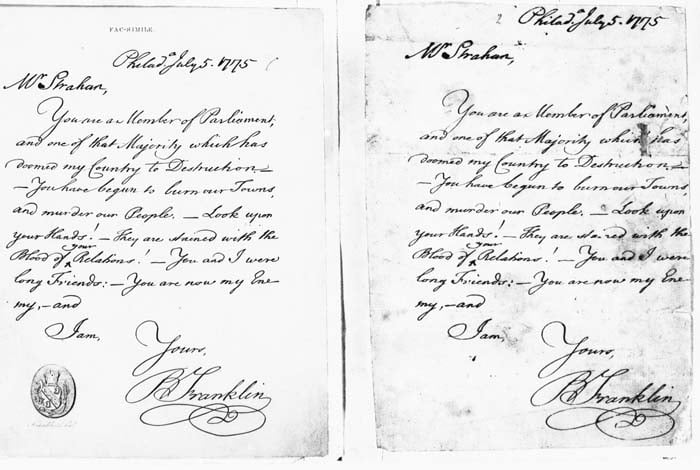 FAC-SIMILE.
Philad.ᵃ July 5. 1775
Mr. Strahan,
You are a Member of Parliament,
and one of that Majority which has
doomed my Country to Destruction.—
— You have begun to burn our Towns,
and murder our People. — Look upon
your Hands! — They are stained with the
Blood of your Relations! — You and I were
long Friends: — You are now my Ene
my, — and
I am,
Yours,
B Franklin
2
Philad.ᵃ July 5. 1775
Mr. Strahan,
You are a Member of Parliament,
and one of that Majority which has
doomed my Country to Destruction.—
— You have begun to burn our Towns,
and murder our People. — Look upon
your Hands! — They are stained with the
Blood of your Relations! — You and I were
long Friends: — You are now my Ene
my, — and
I am,
Yours,
B Franklin